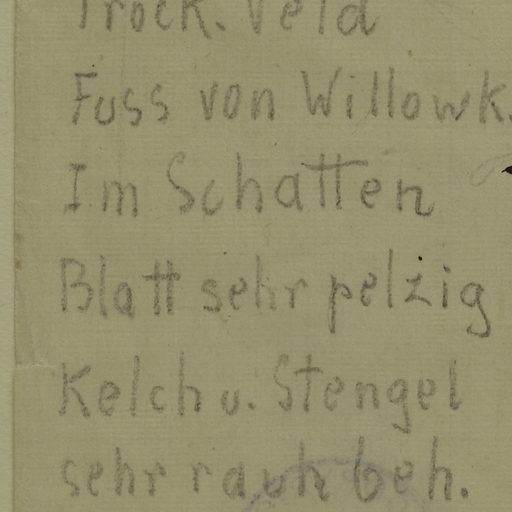 Trock. Veld
Fuss von Willowk.
Im Schatten
Blatt sehr pelzig
Kelch u. Stengel
sehr rauh beh.